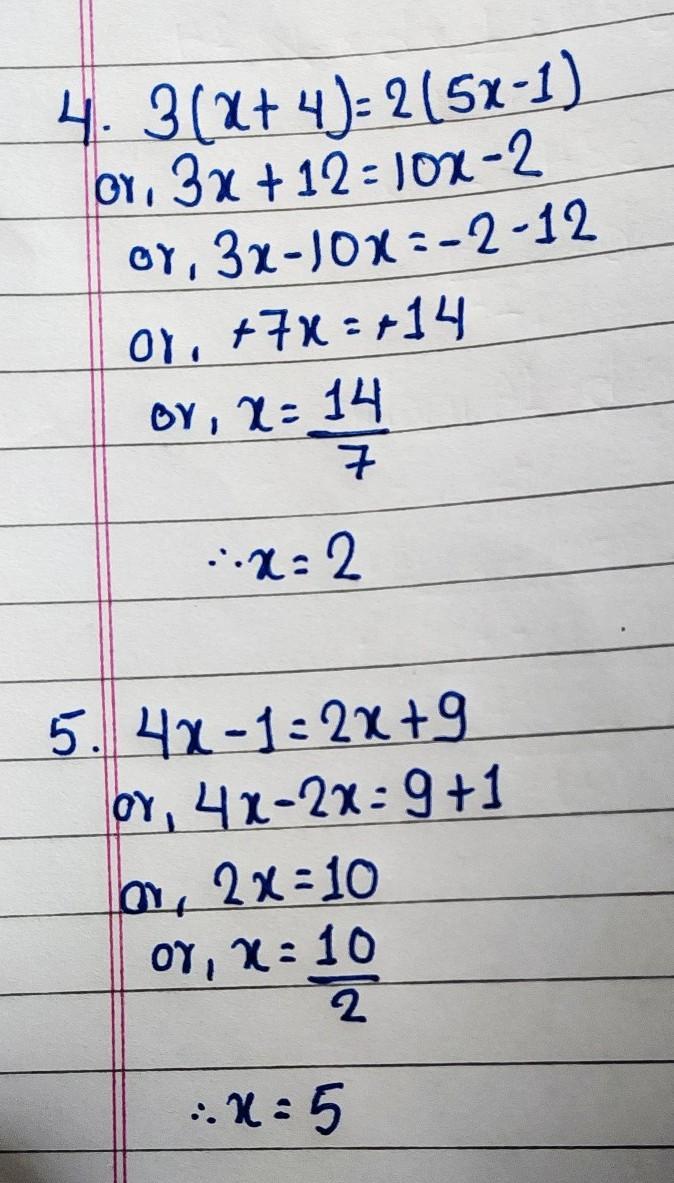 4. 3(x+4)=2(5x-1)
or, 3x+12=10x-2
or, 3x-10x=-2-12
or, +7x=+14
or, x=14/7
∴x=2
5. 4x-1=2x+9
or, 4x-2x=9+1
or, 2x=10
or, x=10/2
∴x=5